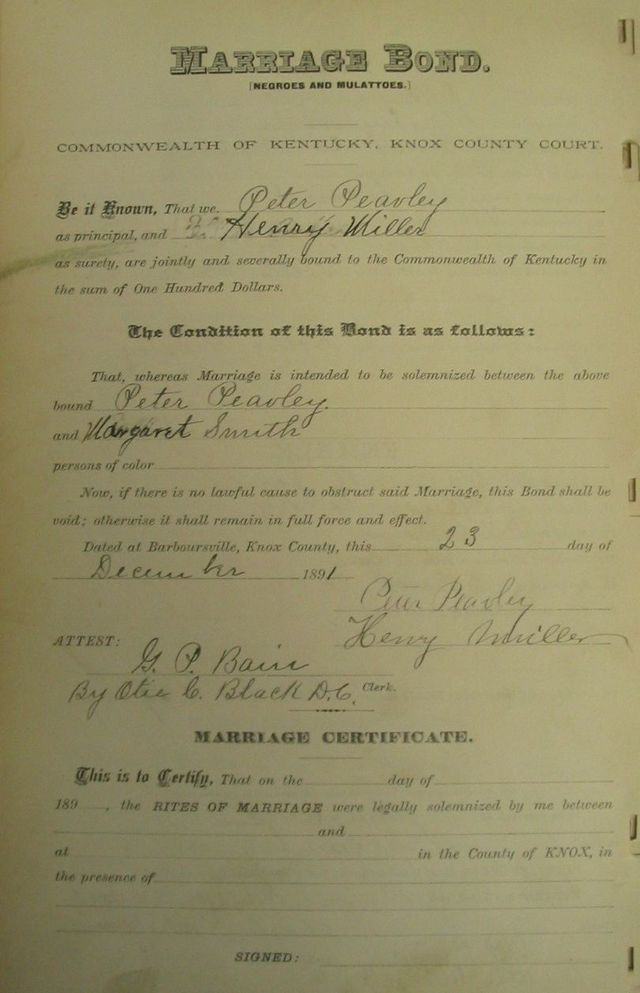 MARRIAGE BOND.
[NEGROES AND MULATTOES.]
COMMONWEALTH OF KENTUCKY, KNOX COUNTY COURT.
Be it Known, That we, Peter Peavley
as principal, and Henry Miller
as surety, are jointly and severally bound to the Commonwealth of Kentucky in
the sum of One Hundred Dollars.
The Condition of this Bond is as follows:
That, whereas Marriage is intended to be solemnized between the above
bound Peter Peavley.
and Margaret Smith
persons of color
Now, if there is no lawful cause to obstruct said Marriage, this Bond shall be
void; otherwise it shall remain in full force and effect.
Dated at Barboursville, Knox County, this 23 day of
December 1891
Peter Peavley
Henry Miller
ATTEST:
G. P. Bain
By Otie C. Black D.C. Clerk.
MARRIAGE CERTIFICATE.
This is to Certify, That on the day of
189 , the RITES OF MARRIAGE were legally solemnized by me between
and
at in the County of KNOX, in
the presence of
SIGNED: